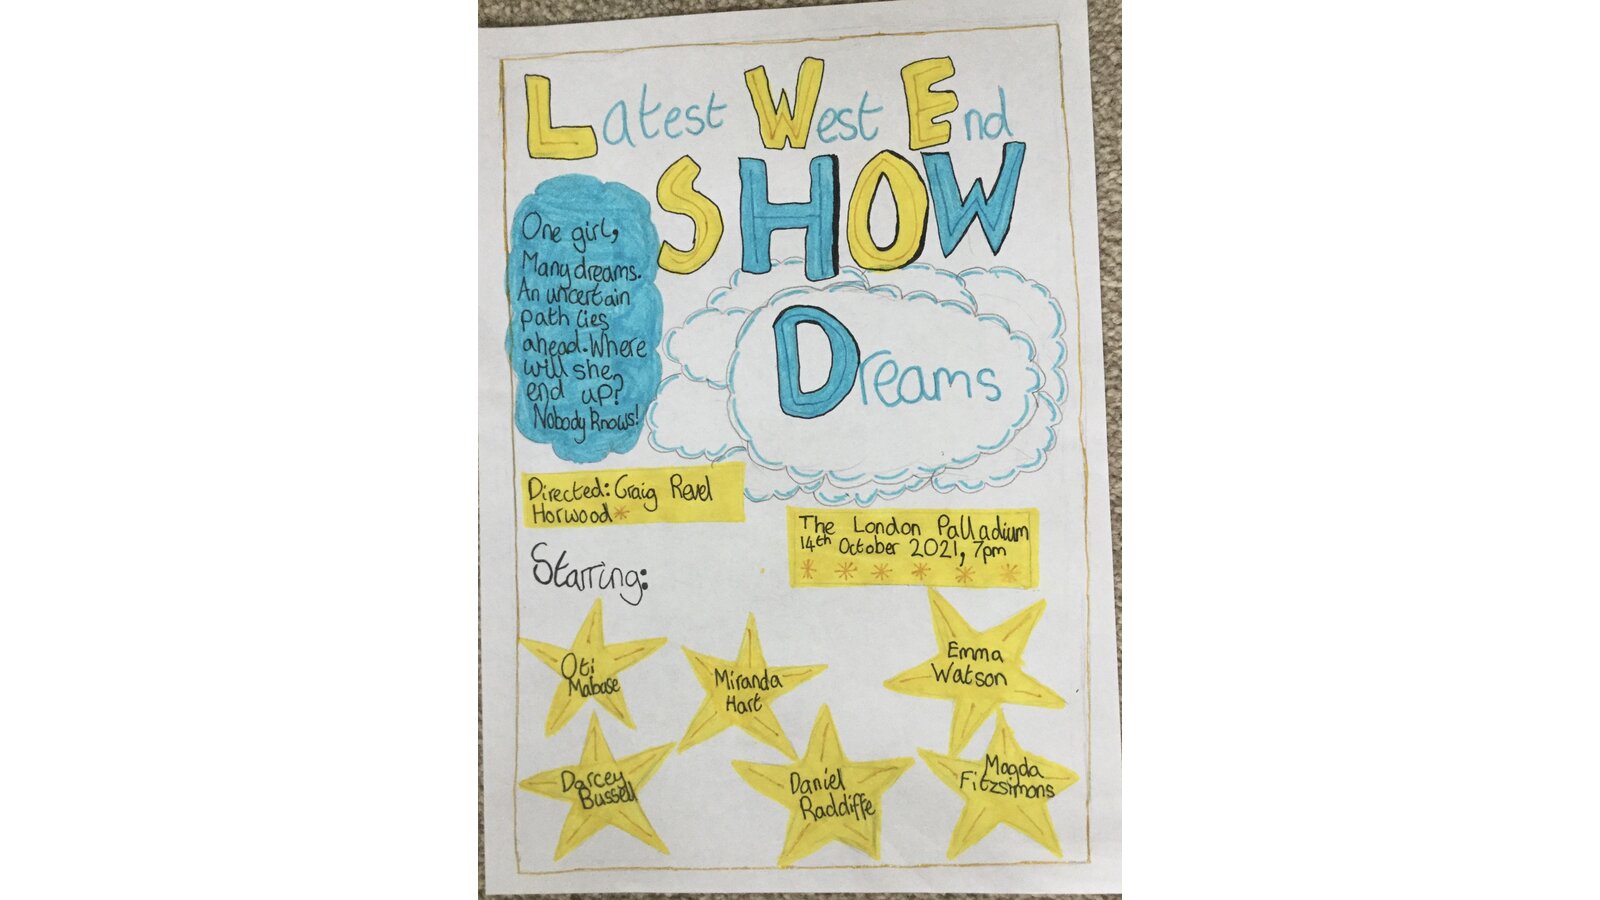 Latest West End
SHOW
One girl,
Many dreams.
An uncertain
path lies
ahead. Where
will she
end up?
Nobody Knows!
Dreams
Directed: Craig Revel
Horwood
The London Palladium
14th October 2021, 7pm
Starring:
Oti
Mabase
Miranda
Hart
Emma
Watson
Darcey
Bussell
Daniel
Raddiffe
Magda
Fitzsimons